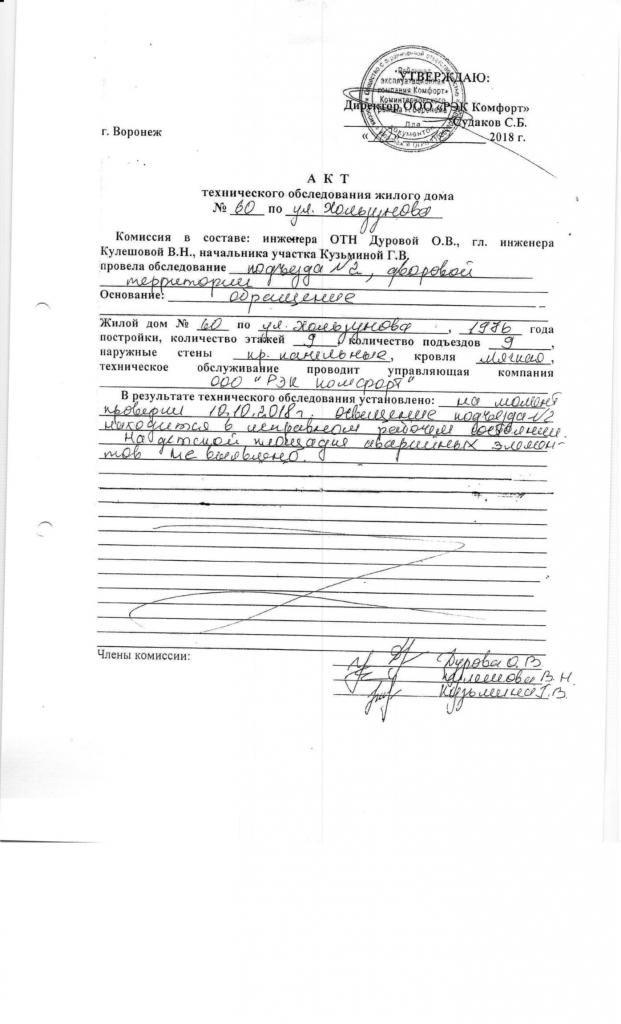 УТВЕРЖДАЮ:
Директор ООО «РЭК Комфорт»
Судаков С.Б.
г. Воронеж
« 10 » 10 2018 г.
А К Т
технического обследования жилого дома
№ 60 по ул. Хользунова
Комиссия в составе: инженера ОТН Дуровой О.В., гл. инженера
Кулешовой В.Н., начальника участка Кузьминой Г.В.
провела обследование подъезда №2, дворовой
территории
Основание: обращение
Жилой дом № 60 по ул. Хользунова, 1976 года
постройки, количество этажей 9, количество подъездов 9,
наружные стены кр. панельные, кровля мягкая,
техническое обслуживание проводит управляющая компания
ООО "РЭК Комфорт"
В результате технического обследования установлено: на момент
проверки 10.10.2018г. освещение подъезда №2
находится в исправном рабочем состоянии.
На детской площадке аварийных элемен-
тов не выявлено.
Члены комиссии:
Дурова О.В
Кулешова В.Н.
Кузьмина Г.В.